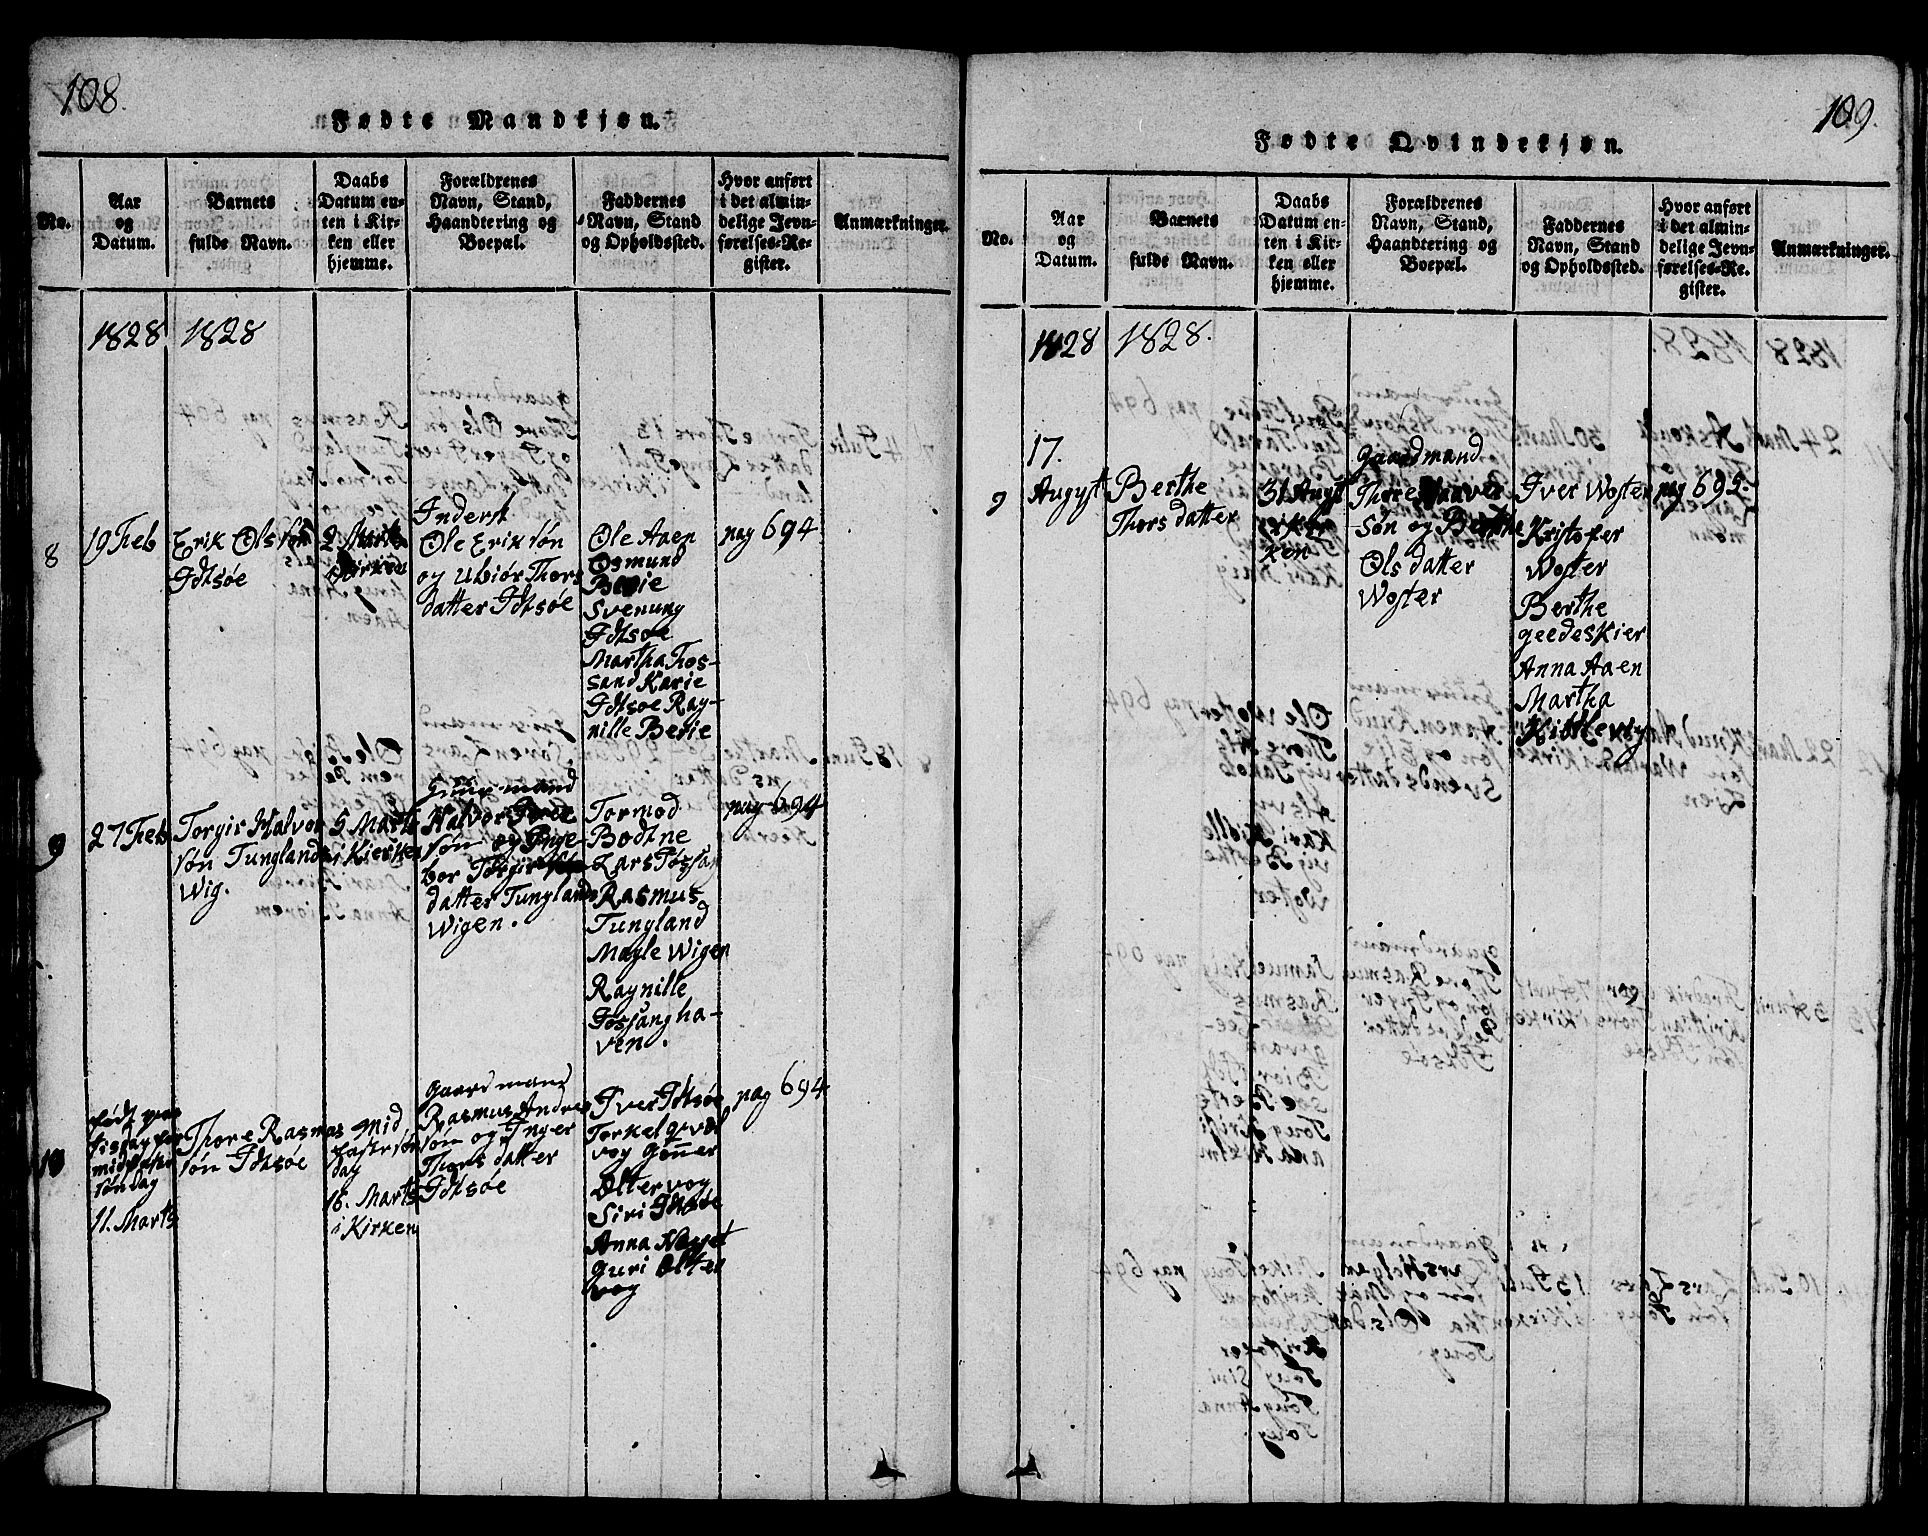 108.
Fødte Mandkjøn.
No.
Aar
og
Datum.
Barnets
fulde Navn.
Daabs
Datum en-
ten i Kir-
ken eller
hjemme.
Forældrenes
Navn, Stand,
Haandtering og
Boepæl.
Faddernes
Navn, Stand
og Opholdssted.
Hvor anført
i det almin-
delige Jevn-
førelses-Re-
gister.
Anmærkninger.
1828 1828
8
19 Feb
Erik Ols søn
Idtsøe
2 Marts
i Kirken
Indersk
Ole Erik søn
og Ubiør Thors
datter Idtsøe
Ole Aaen
Osmund
Berie
Svenung
Idtsøe
Martha Fos-
sand Karie
Idtsøe Rag-
nille Berie
pag 694
9
27 Feb
Torgir Halvor
søn Tunglands
Wig.
5 Marts
i Kierken
mand
Halvor Tore
søn og Inge-
bor Torgir
datter Tungland
Wigen.
Tormod
Bodtne
Lars Fossan
Rasmus
Tungland
Magle Wigen
Ragnille
Fossang ha-
ven.
pag 694
10
født
midfaste
søndag
11. Marts
Thore Rasmus
søn Idtsøe
Mid
faste søn
dag
16. Marts
i Kirken
Gaardmand
Rasmus Andres
søn og Inger
Thors datter
Idtsøe
Iver Idtsøe
Torkel
vog Gunner
Oltervog
Siri Idtsøe
Anna
Guri Olter
vog
pag 694
109.
Fødte Qvindekjøn.
No.
Aar
og
Datum.
Barnets
fulde Navn.
Daabs
Datum en-
ten i Kir-
ken eller
hjemme.
Forældrenes
Navn, Stand,
Haandtering og
Boepæl.
Faddernes
Navn, Stand
og Opholdssted.
Hvor anført
i det almin-
delige Jevn-
førelses-Re-
gister.
Anmærkninger.
1828 1828.
9
17.
Augyst
Berthe
Thors datter
31 Augst
i Kir
ken
Gaardmand
Thore Haaver
søn og Berthe
Ols datter
Woster
Iver Woster
Kristofer
Woster
Berthe
geedeskier
Anna Aaen
Martha
Kidlevig
pag 695